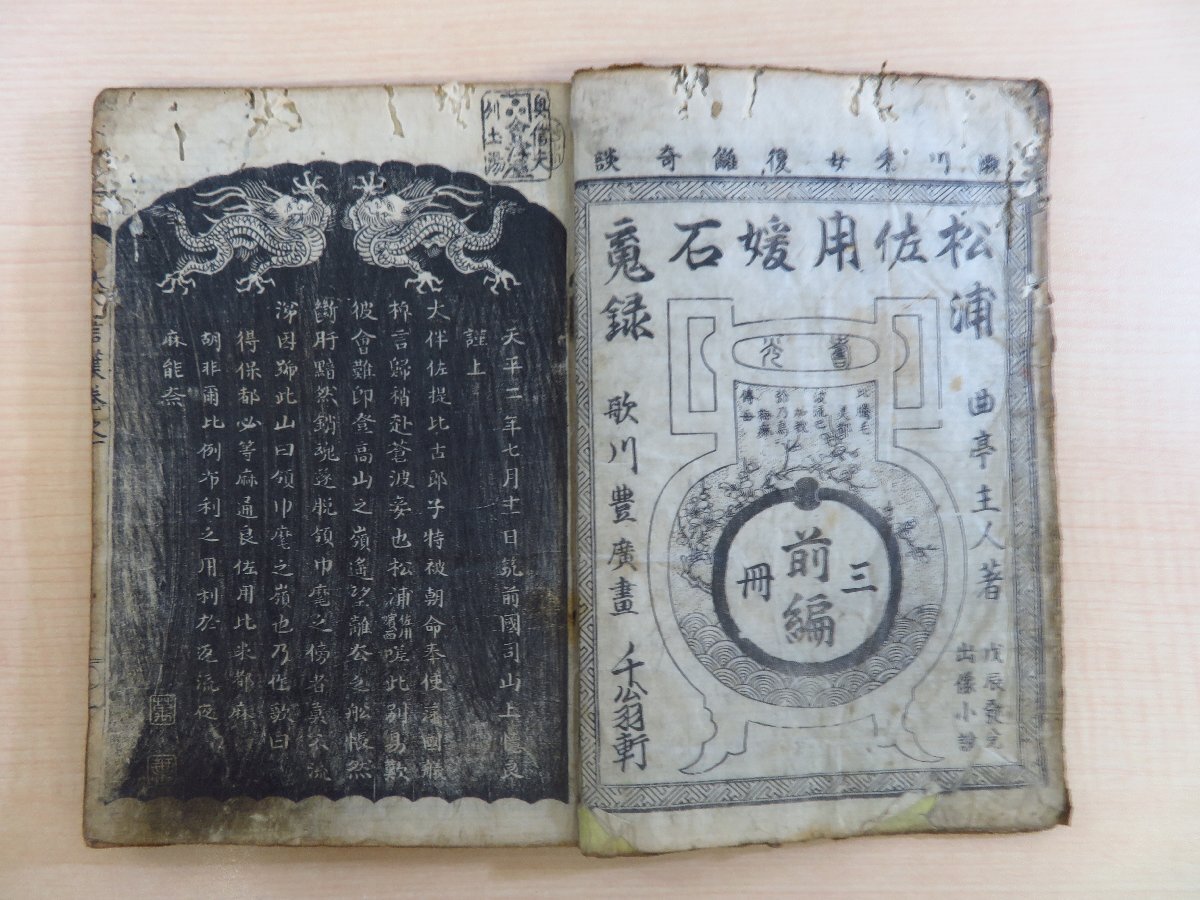 瀬川采女復讎奇談
松浦佐用媛石
䰟録
曲亭主人著
戊辰發兌
出像小説
前編
三冊
歌川豊廣畫
千翁軒
天平二年七月十一日筑前國司山上憶良
謹上
大伴佐提比古郎子特被朝命奉使
棹言歸稍赴蒼波妾也松浦佐用嬪面嗟此別易歎
彼會難即登高山之嶺遙望離去之船悵然
斷肝黯然銷魂遂脱領巾麾之傍者莫不流
涕因號此山曰領巾麾之嶺也乃作歌曰
得保都必等麻通良佐用比米都麻
胡非爾比例布利之用利於返流夜
麻能奈